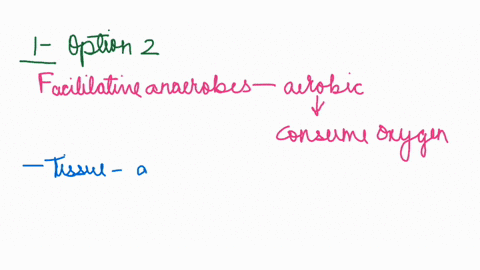 1- Option 2
Facilitative anaerobes— aerobic
↓
Consume Oxygen
— Tissue - a